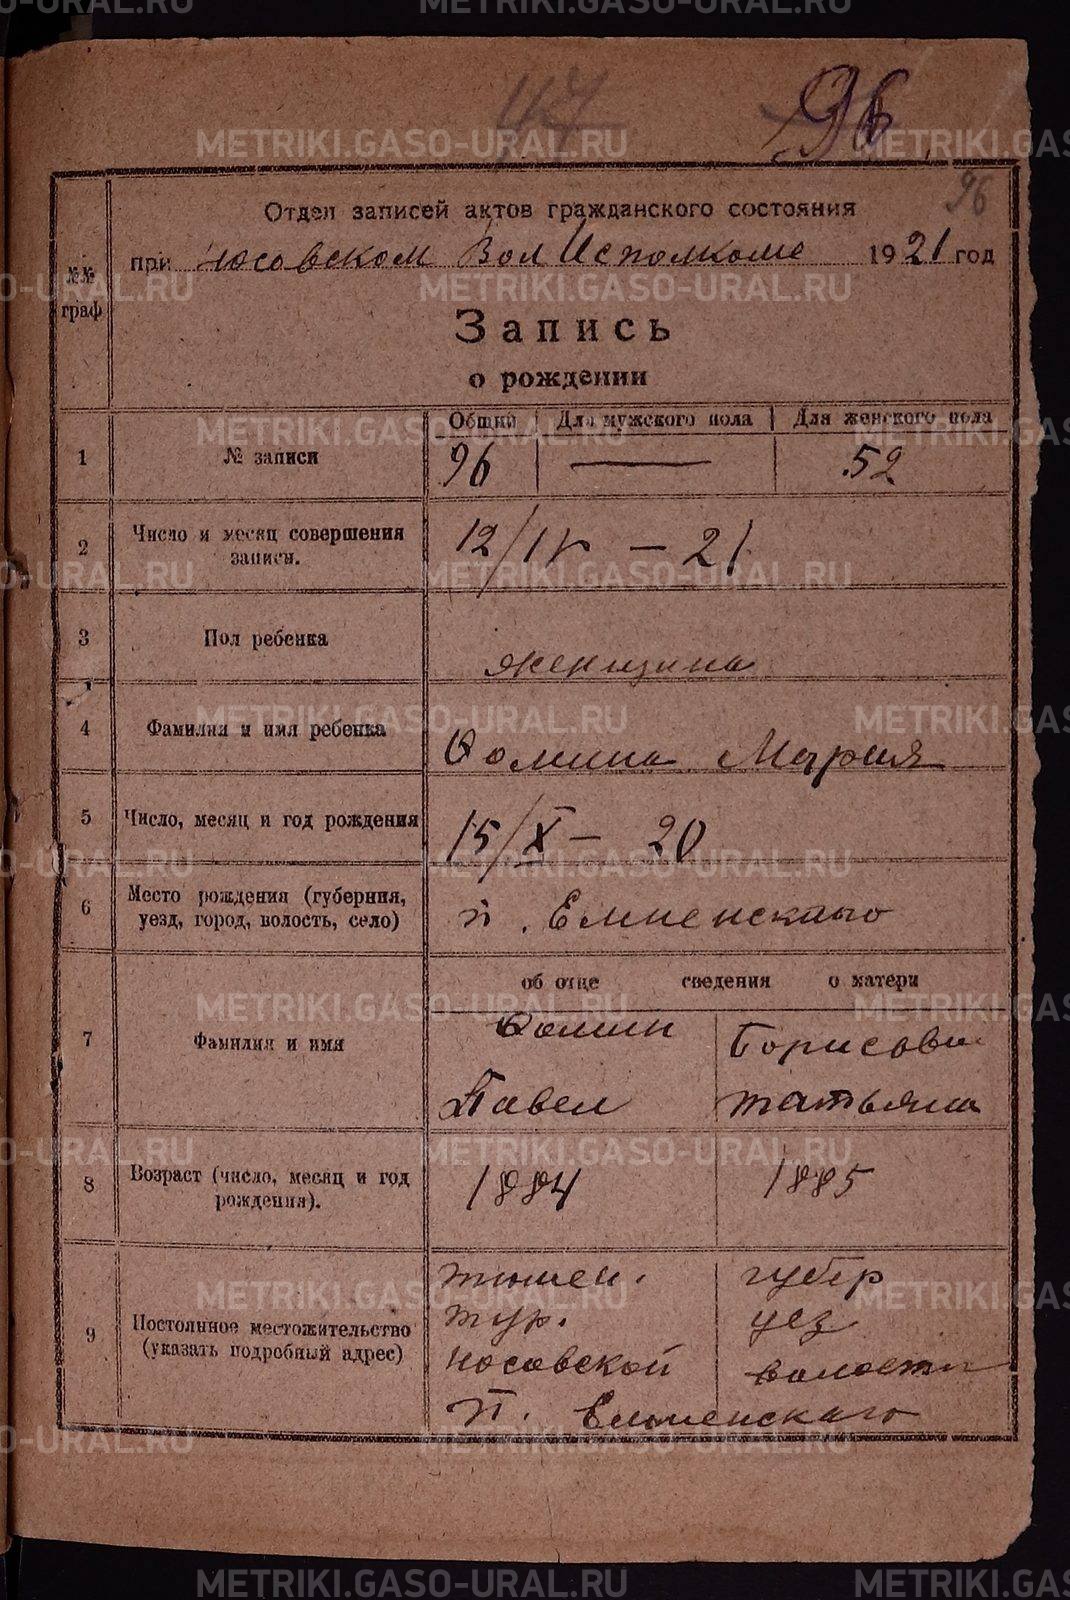 47
96
96
Отдел записей актов гражданского состояния
при Носовском Вол Исполкоме 1921 год
№№ граф
Запись
о рождении
Общий Для мужского пола Для женского пола
1 № записи 96 — 52
2 Число и месяц совершения
записи.
12/IV - 21
3 Пол ребенка женщина
4 Фамилия и имя ребенка Фомина Мария
5 Число, месяц и год рождения 15/X - 20
6 Место рождения (губерния,
уезд, город, волость, село)
п.
об отце сведения о матери
7 Фамилия и имя
Фомин Борисова
Павел Татьяна
8 Возраст (число, месяц и год
рождения).
1884 1885
9 Постоянное местожительство
(указать подробный адрес)
тюмен. губер
тур. уез
Носовской волости
п.
METRIKI.GASO-URAL.RU